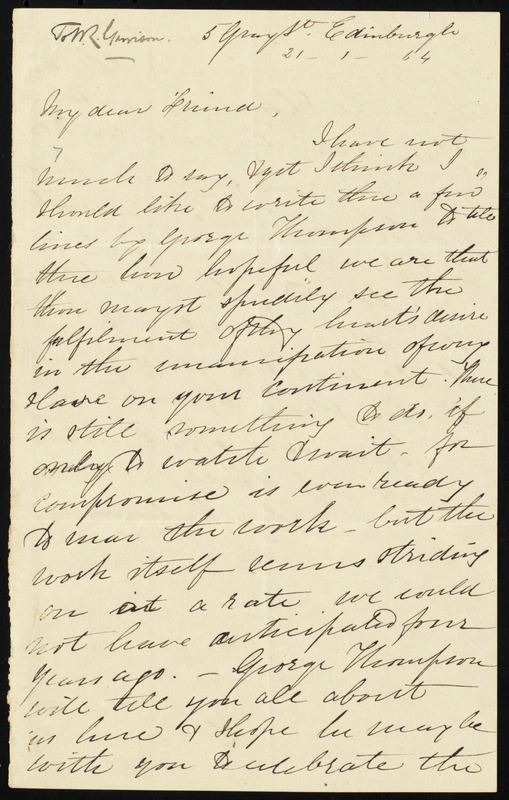 To W. L. Garrison.
5 Gray St. Edinburgh
21 - 1 - 64
My dear Friend,
I have not
much to say, & yet I think I
should like to write thee a few
lines by George Thompson to tell
thee how hopeful we are that
thou mayst speedily see the
fulfilment of thy heart's desire
in the emancipation of every
slave on your continent. There
is still something to do, if
only to watch & wait - for
compromise is ever ready
to mar the work - but the
work itself seems striding
on at a rate we could
not have anticipated four
years ago. - George Thompson
will tell you all about
us here & I hope he may be
with you to celebrate the